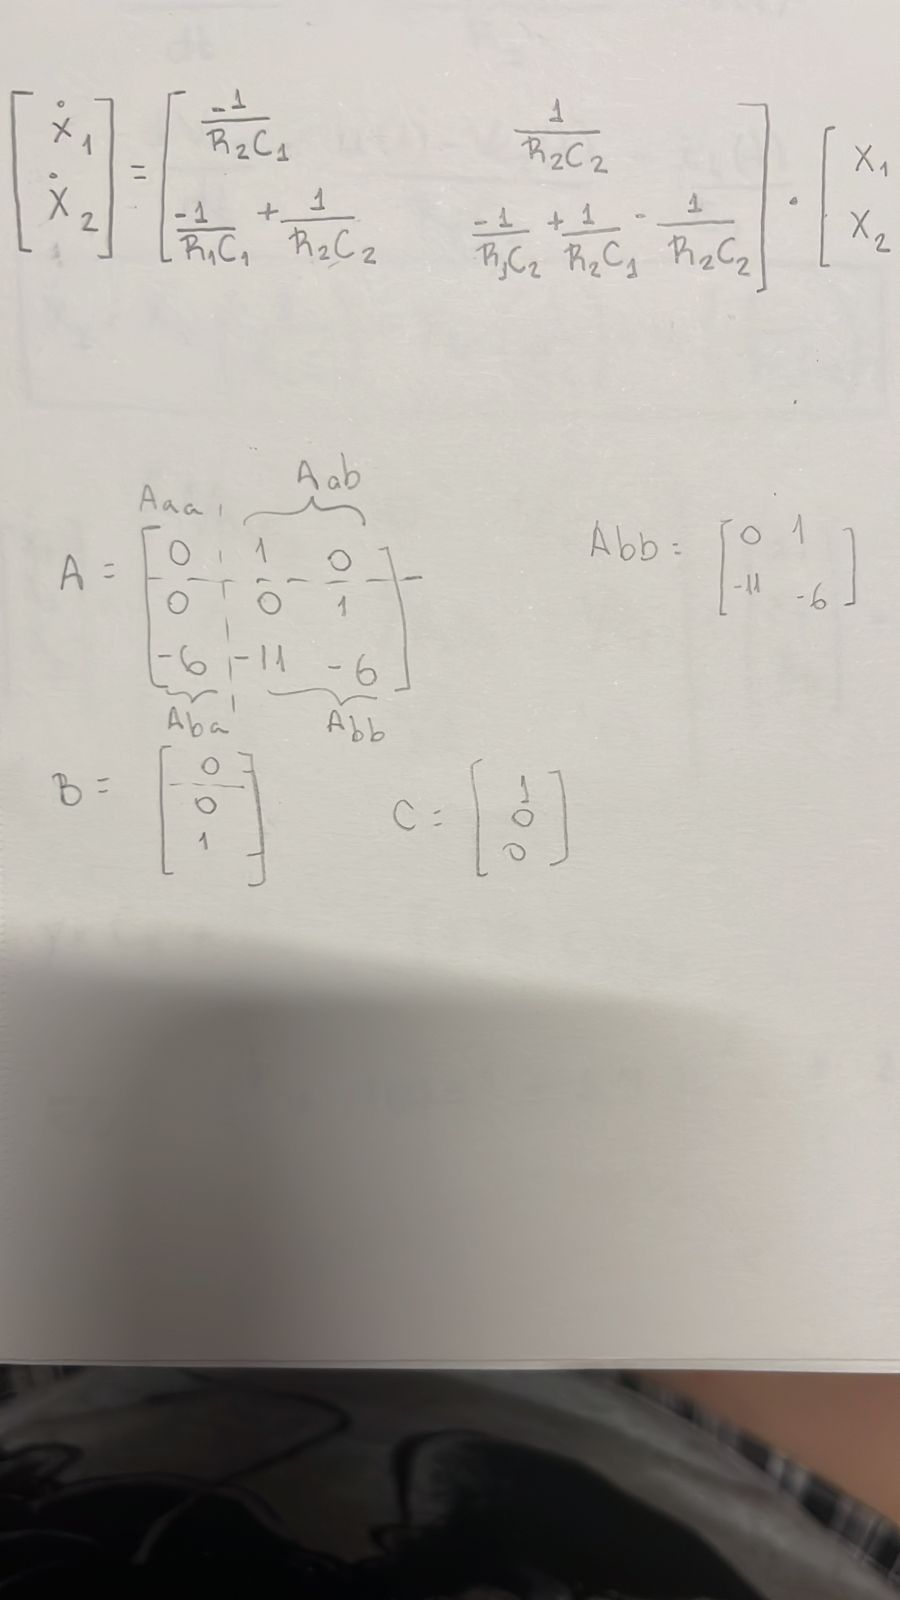 [ẋ₁ ẋ₂] = [-1/R₂C₁ 1/R₂C₂
-1/R₁C₁ + 1/R₂C₂ -1/R₁C₂ + 1/R₂C₁ - 1/R₂C₂] · [x₁ x₂]
Aaa Aab
A = [0 1 0
0 0 1
-6 -11 -6]
Aba Abb
Abb = [0 1
-11 -6]
B = [0
0
1]
C = [1
0
0]